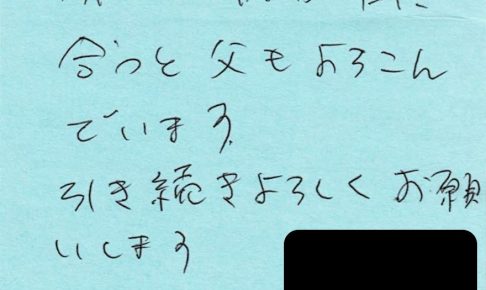 合うと父もよろこん
でいます
引き続きよろしくお願
いします